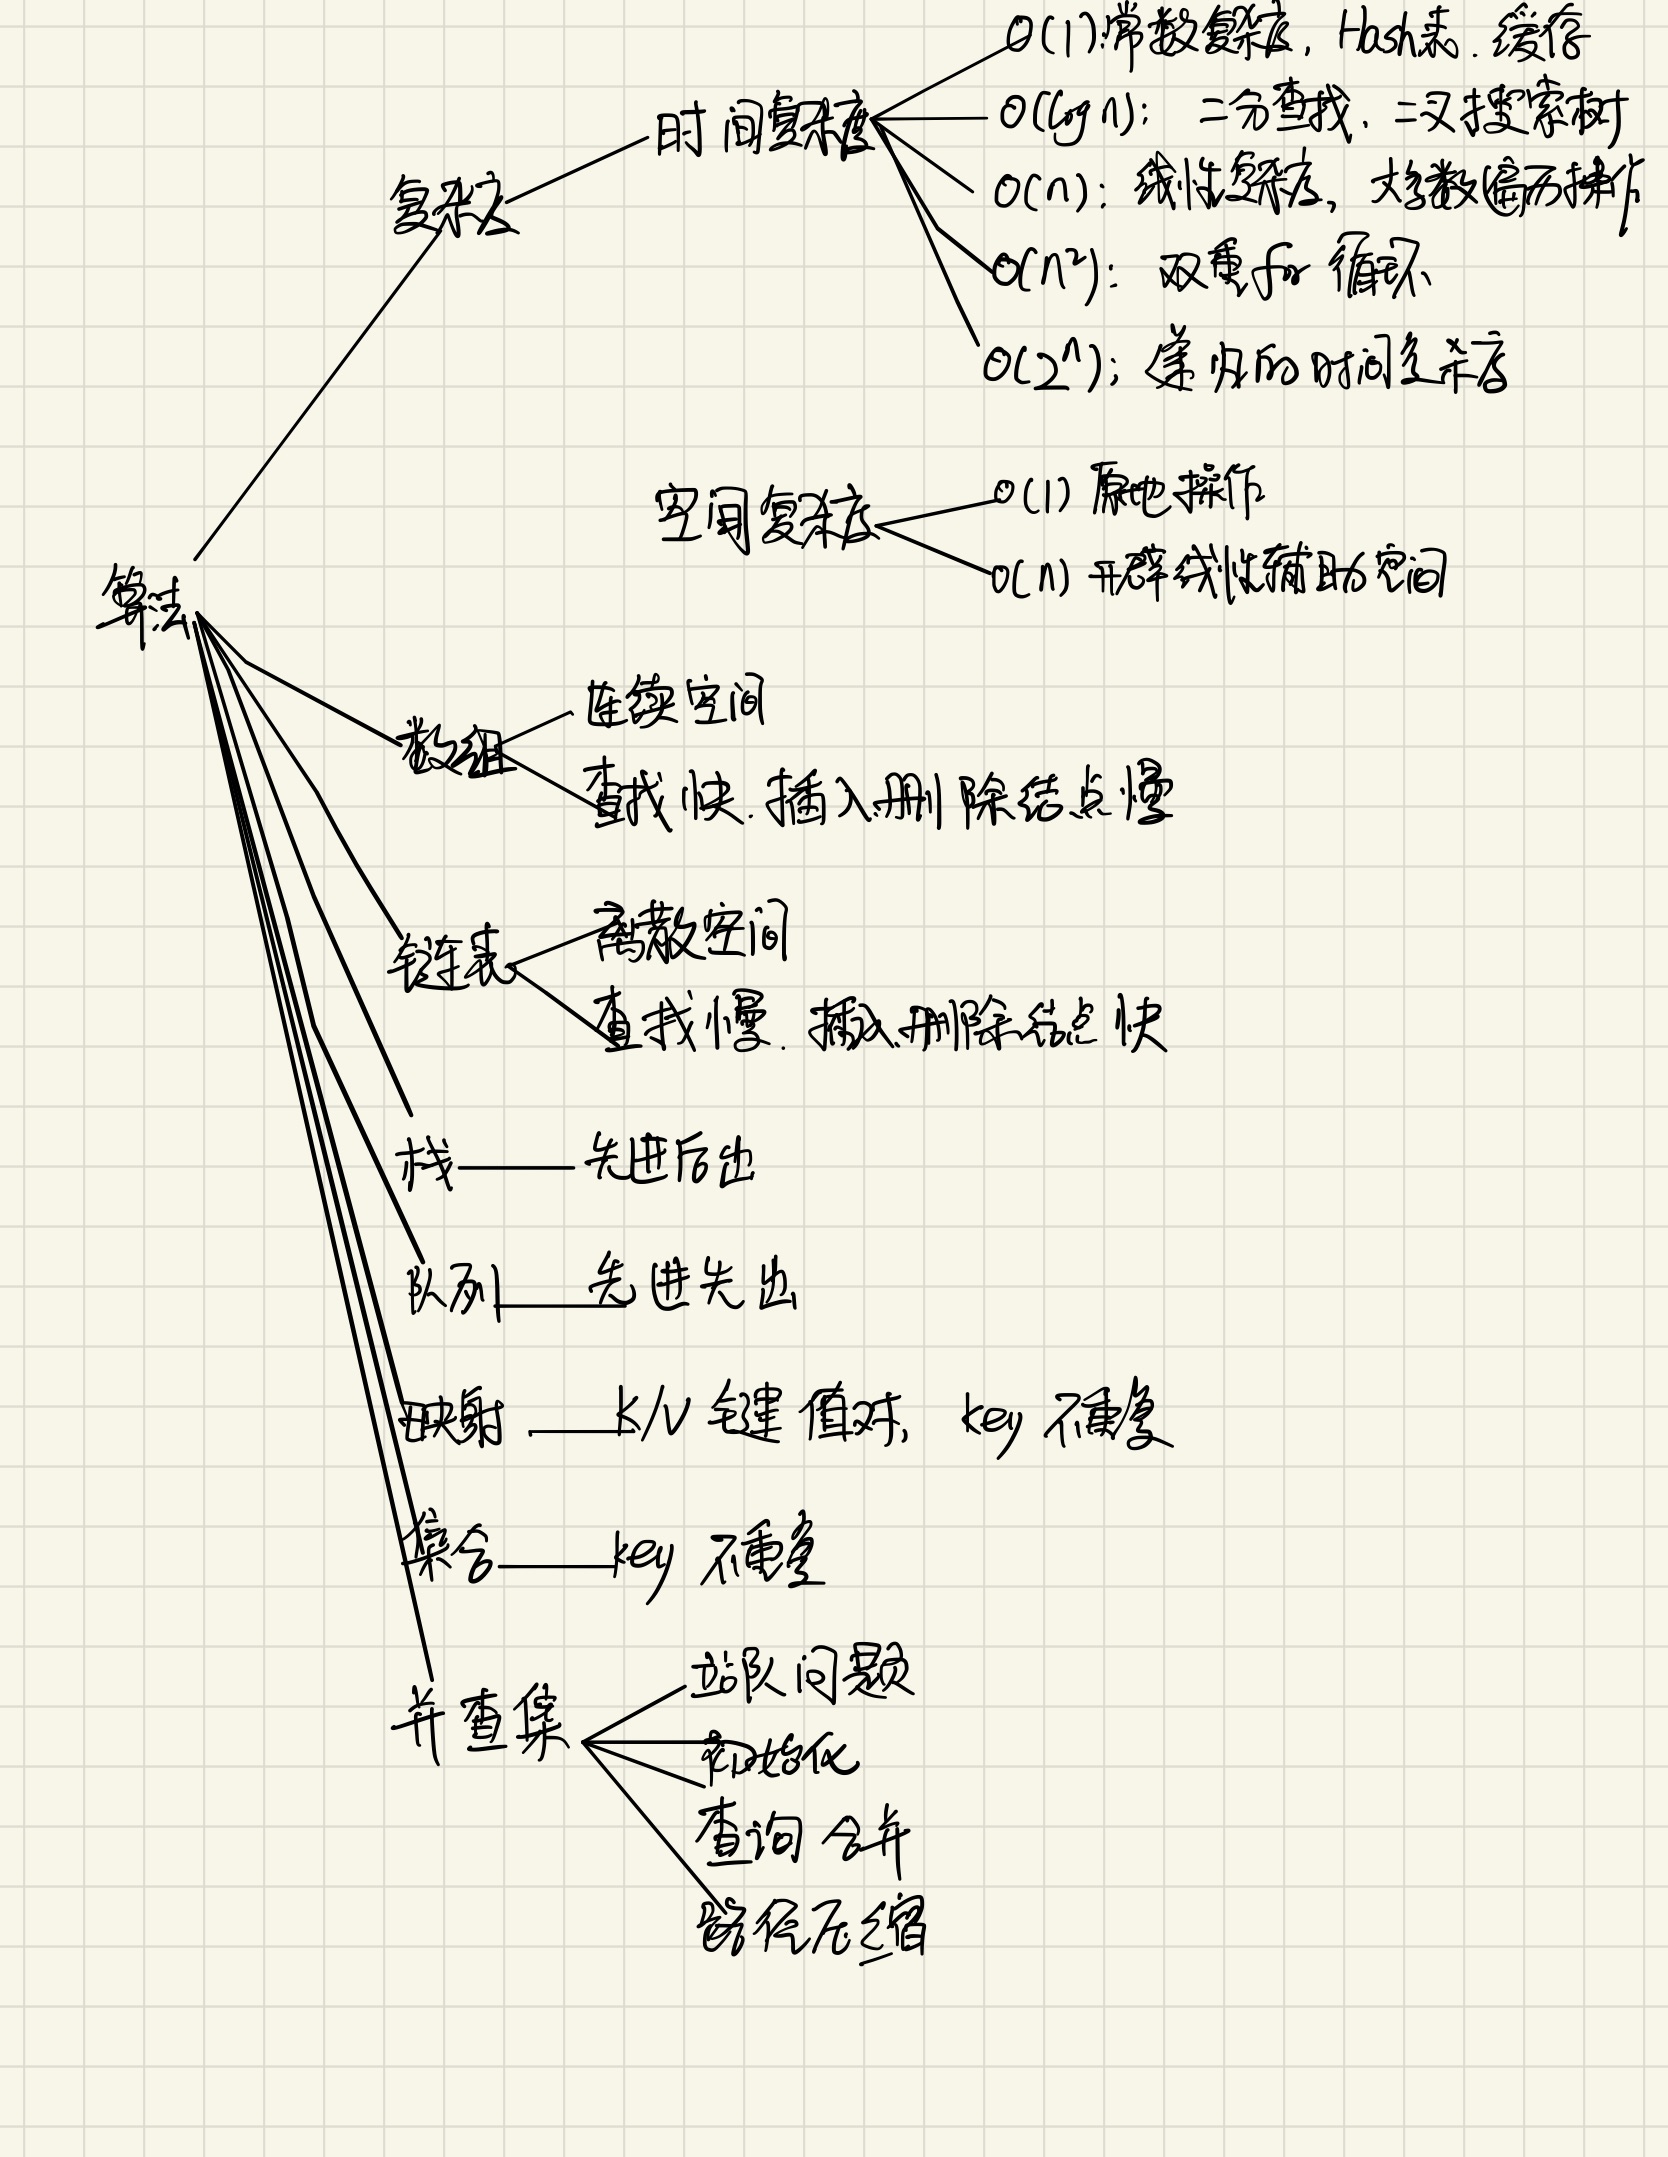 O(1):常数复杂度, Hash表. 缓存
O(log n): 二分查找. 二叉搜索树
时间复杂度
复杂度
O(n): 线性复杂度, 大多数遍历操作
O(n²): 双重for 循环
O(2ⁿ): 递归的时间复杂度
空间复杂度
O(1) 原地操作
O(n) 开辟线性辅助空间
算法
数组
连续空间
查找快. 插入.删除结点慢
链表
离散空间
查找慢. 插入.删除结点快
栈 先进后出
队列 先进先出
映射 K/V 键值对, key 不重复
集合 key 不重复
并查集
站队问题
初始化
查询 合并
路径压缩